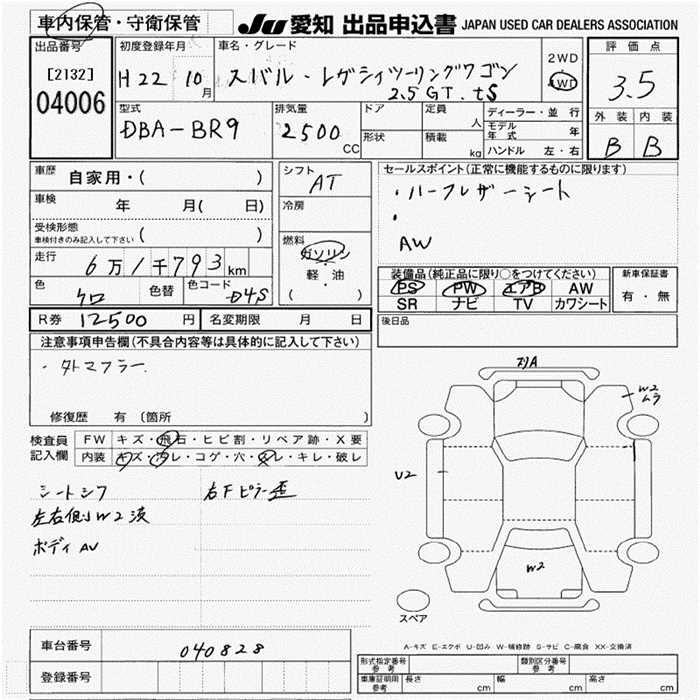 車内保管・守衛保管
JU 愛知 出品申込書 JAPAN USED CAR DEALERS ASSOCIATION
出品番号
[2132]
04006
初度登録年月
H22 10月
車名・グレード
スバル・レガシィツーリングワゴン
2.5GT・tS
2WD
4WD
評価点
3.5
外装 内装
B B
型式
DBA-BR9
排気量
2500 CC
ドア
形状
定員 人
積載 kg
ディーラー・並行
モデル年式 年
ハンドル 左・右
車歴 自家用・( )
車検 年 月( 日)
受検形態
車検付きのみ記入して下さい ( )
走行 6万1千793km
色 クロ 色替 色コード D4S
シフト AT
冷房
燃料
ガソリン
軽・油
( )
セールスポイント(正常に機能するものに限ります)
・ハーフレザーシート
・
AW
装備品(純正品に限り○をつけてください)
PS PW エアB AW
SR ナビ TV カワシート
新車保証書
有・無
R券 12500円 名変期限 月 日
後日品
注意事項申告欄(不具合内容等は具体的に記入して下さい)
・外トマフラー
修復歴 有〔箇所
検査員記入欄
FW キズ・飛石・ヒビ割・リペア跡・X要
内装 キズ・汚レ・コゲ・穴・スレ・キレ・破レ
シートシワ 右Fピラー歪
左右側W2波
ボディAU
W2
ムラ
U2
W2
スペア
A-キズ E-エクボ U-凹み W-補修跡 S-サビ C-腐食 XX-交換済
車台番号 040828
登録番号
形式指定番号 参考
類別区分番号 参考
車庫証明用 参考 長さ cm 幅 cm 高さ cm